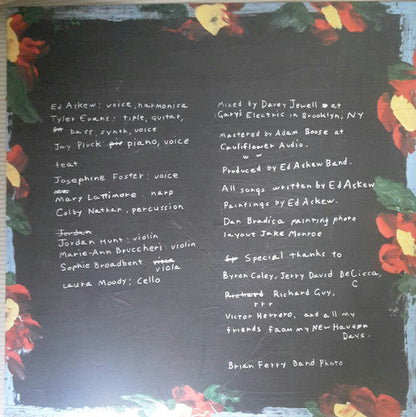 Ed Askew: voice, harmonica
Tyler Evans: tiple, guitar,
bass, synth, voice
Jay Pluck: piano, voice
feat
Josephine Foster: voice
Mary Lattimore: harp
Colby Nathan, percussion
Jordan
Jordan Hunt: violin
Marie-Ann Bruccheri: violin
Sophie Broadbent. viola
viola
Laura Moody: cello
Mixed by Davey Jewell at
Gary's Electric in Brooklyn, NY
Mastered by Adam Boose at
Cauliflower Audio.
Produced by Ed Askew Band.
All songs written by Ed Askew
Paintings by Ed Askew.
Dan Bradica painting photo
layout Jake Monroe
Special thanks to
Byron Coley, Jerry David DeCicca,
C
Richard Richard Guy,
r r r
Victor Herrero, and all my
friends from my New Haven
Days.
Brian Ferry Band Photo